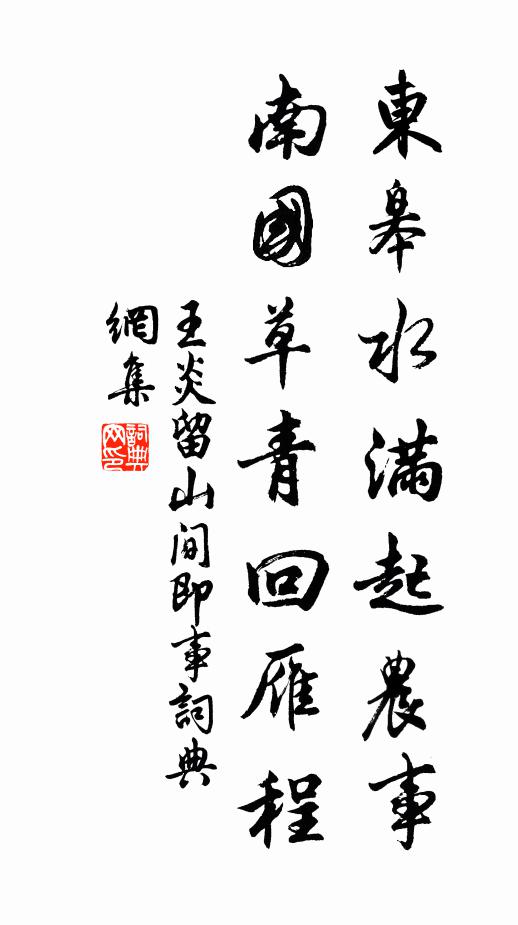 東皋水满起農事
南國草青回雁程
王炎留山间即事詞典
網集
詞典网印